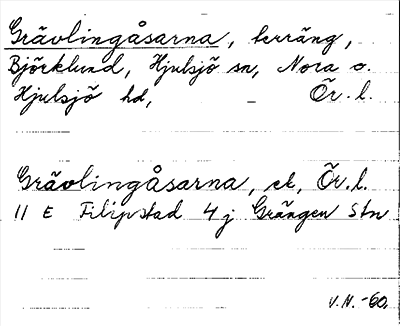 Grävlingåsarna, terräng,
Björklund, Hjulsjö sn, Nora o.
Hjulsjö hd, Ör. l.
Grävlingåsarna, ek, Ör. l.
11 E Filipstad 4 j Grängen Stn
V. N. -60.